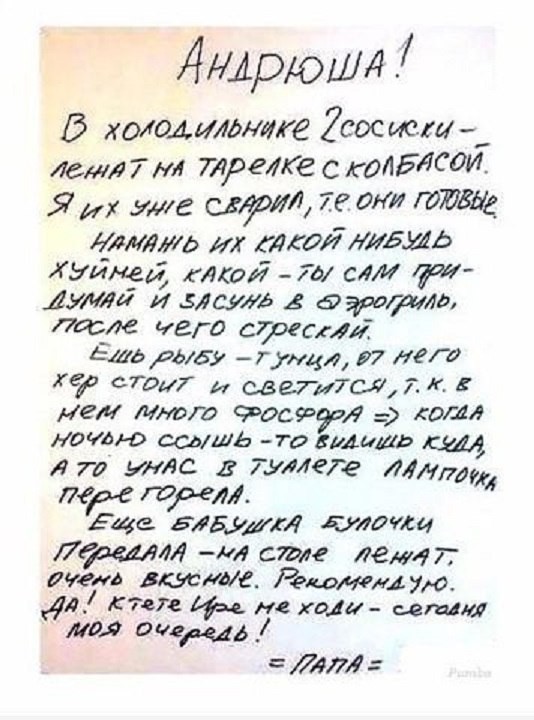 Андрюша!
В холодильнике 2 сосиски –
лежат на тарелке с колбасой.
Я их уже сварил, т.е. они готовые
Намажь их какой нибудь
хуйней, какой – ты сам при-
думай и засунь в аэрогриль,
после чего стрескай.
Ешь рыбу – тунца, от него
хер стоит и светится, т.к. в
нем много фосфора => когда
ночью ссышь – то видишь куда,
а то у нас в туалете лампочка
перегорела.
Еще бабушка булочки
передала – на столе лежат,
очень вкусные. Рекомендую.
Да! К тете Ире не ходи – сегодня
моя очередь!
= Папа =
Pumba